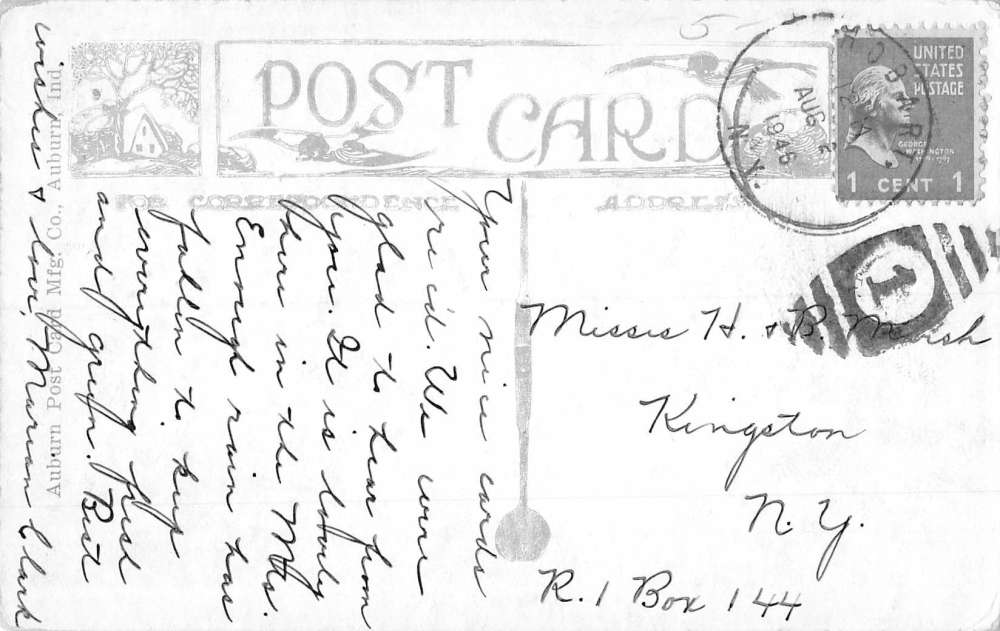 POST CARD
FOR CORRESPONDENCE
ADDRESS
Auburn Post Card Mfg. Co., Auburn, Ind.
UNITED
STATES
POSTAGE
GEORGE
WASHINGTON
1 CENT 1
AUG 2
1946
N.Y.
1
Your nice cards
re'c'd. We were
glad to hear from
you. It is lovely
here in the Mts.
Enough rain has
fallen to keep
everything fresh
and green. Best
wishes & love, Marian Clark
Misses H. & B. Marsh
Kingston
N. Y.
R. 1 Box 144